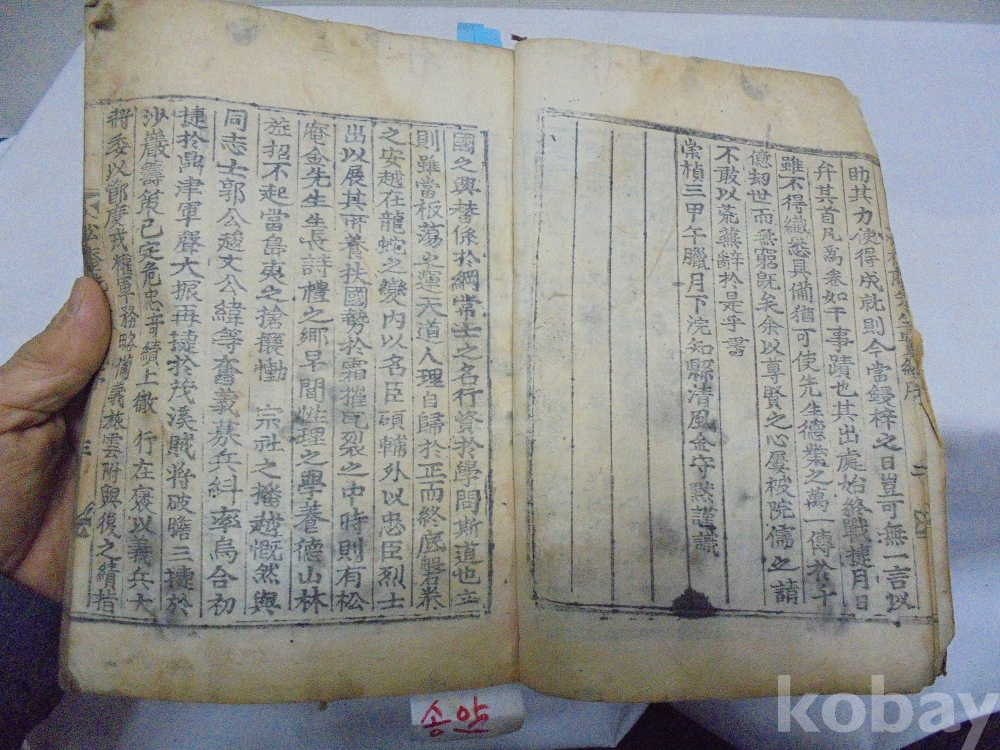 助其力使得成就則今當鋟梓之日豈可無一言以
弁其首凡爲卷如干事蹟也其出處始終戰捷月日
雖不得纖悉具備猶可使先生德業之萬一傳於千
億刼世而無窮旣矣余以尊賢之心屢被院儒之請
不敢以荒蕪辭於是乎書
崇禎三甲午臘月下浣知縣清風金守黙謹識
國之興替係於綱常士之名行資於學問斯道也立
則雖當板蕩之運天道人理自歸於正而終底磐泰
之安越在龍蛇之變內以名臣碩輔外以忠臣烈士
出以展其所養扶國勢於霜摧瓦裂之中時則有松
庵金先生生長詩禮之鄉早聞性理之學養德山林
旌招不起當島夷之搶攘慟 宗社之播越慨然與
同志士郭公䞭文公緯等奮義募兵糾率烏合初
捷於鼎津軍聲大振再捷於茂溪賊將破膽三捷於
沙巖籌策已定危忠奇績上徹 行在褒以義兵大
將委以節度戎權軍務略備義旅雲附興復之績指
송암
kobay